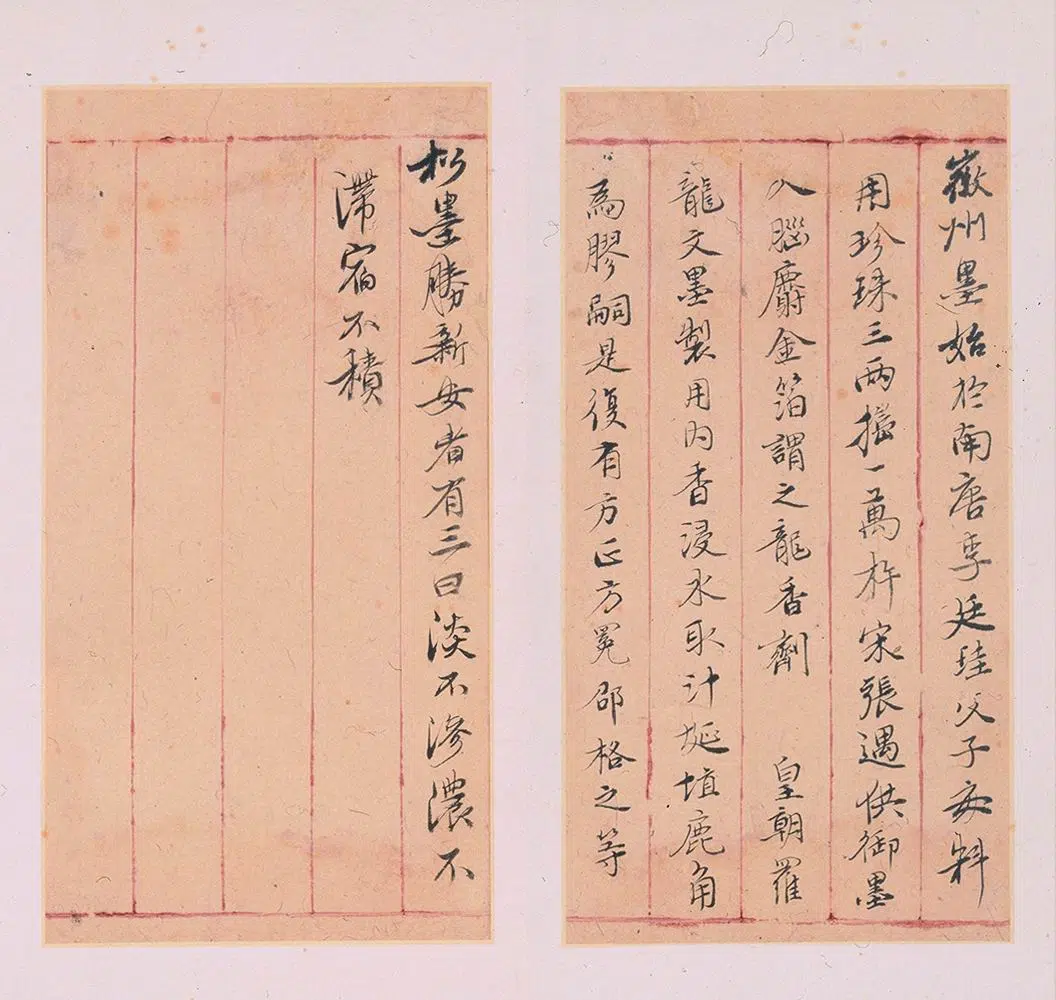 徽州墨始於南唐李廷珪父子每料
用珍珠三兩搗一萬杵宋張遇供御墨
入腦麝金箔謂之龍香劑 皇朝羅
龍文墨製用內香浸水取汁埏埴鹿角
為膠嗣是復有方正方冕邵格之等
松墨勝新安者有三曰淡不滲濃不
滯宿不積